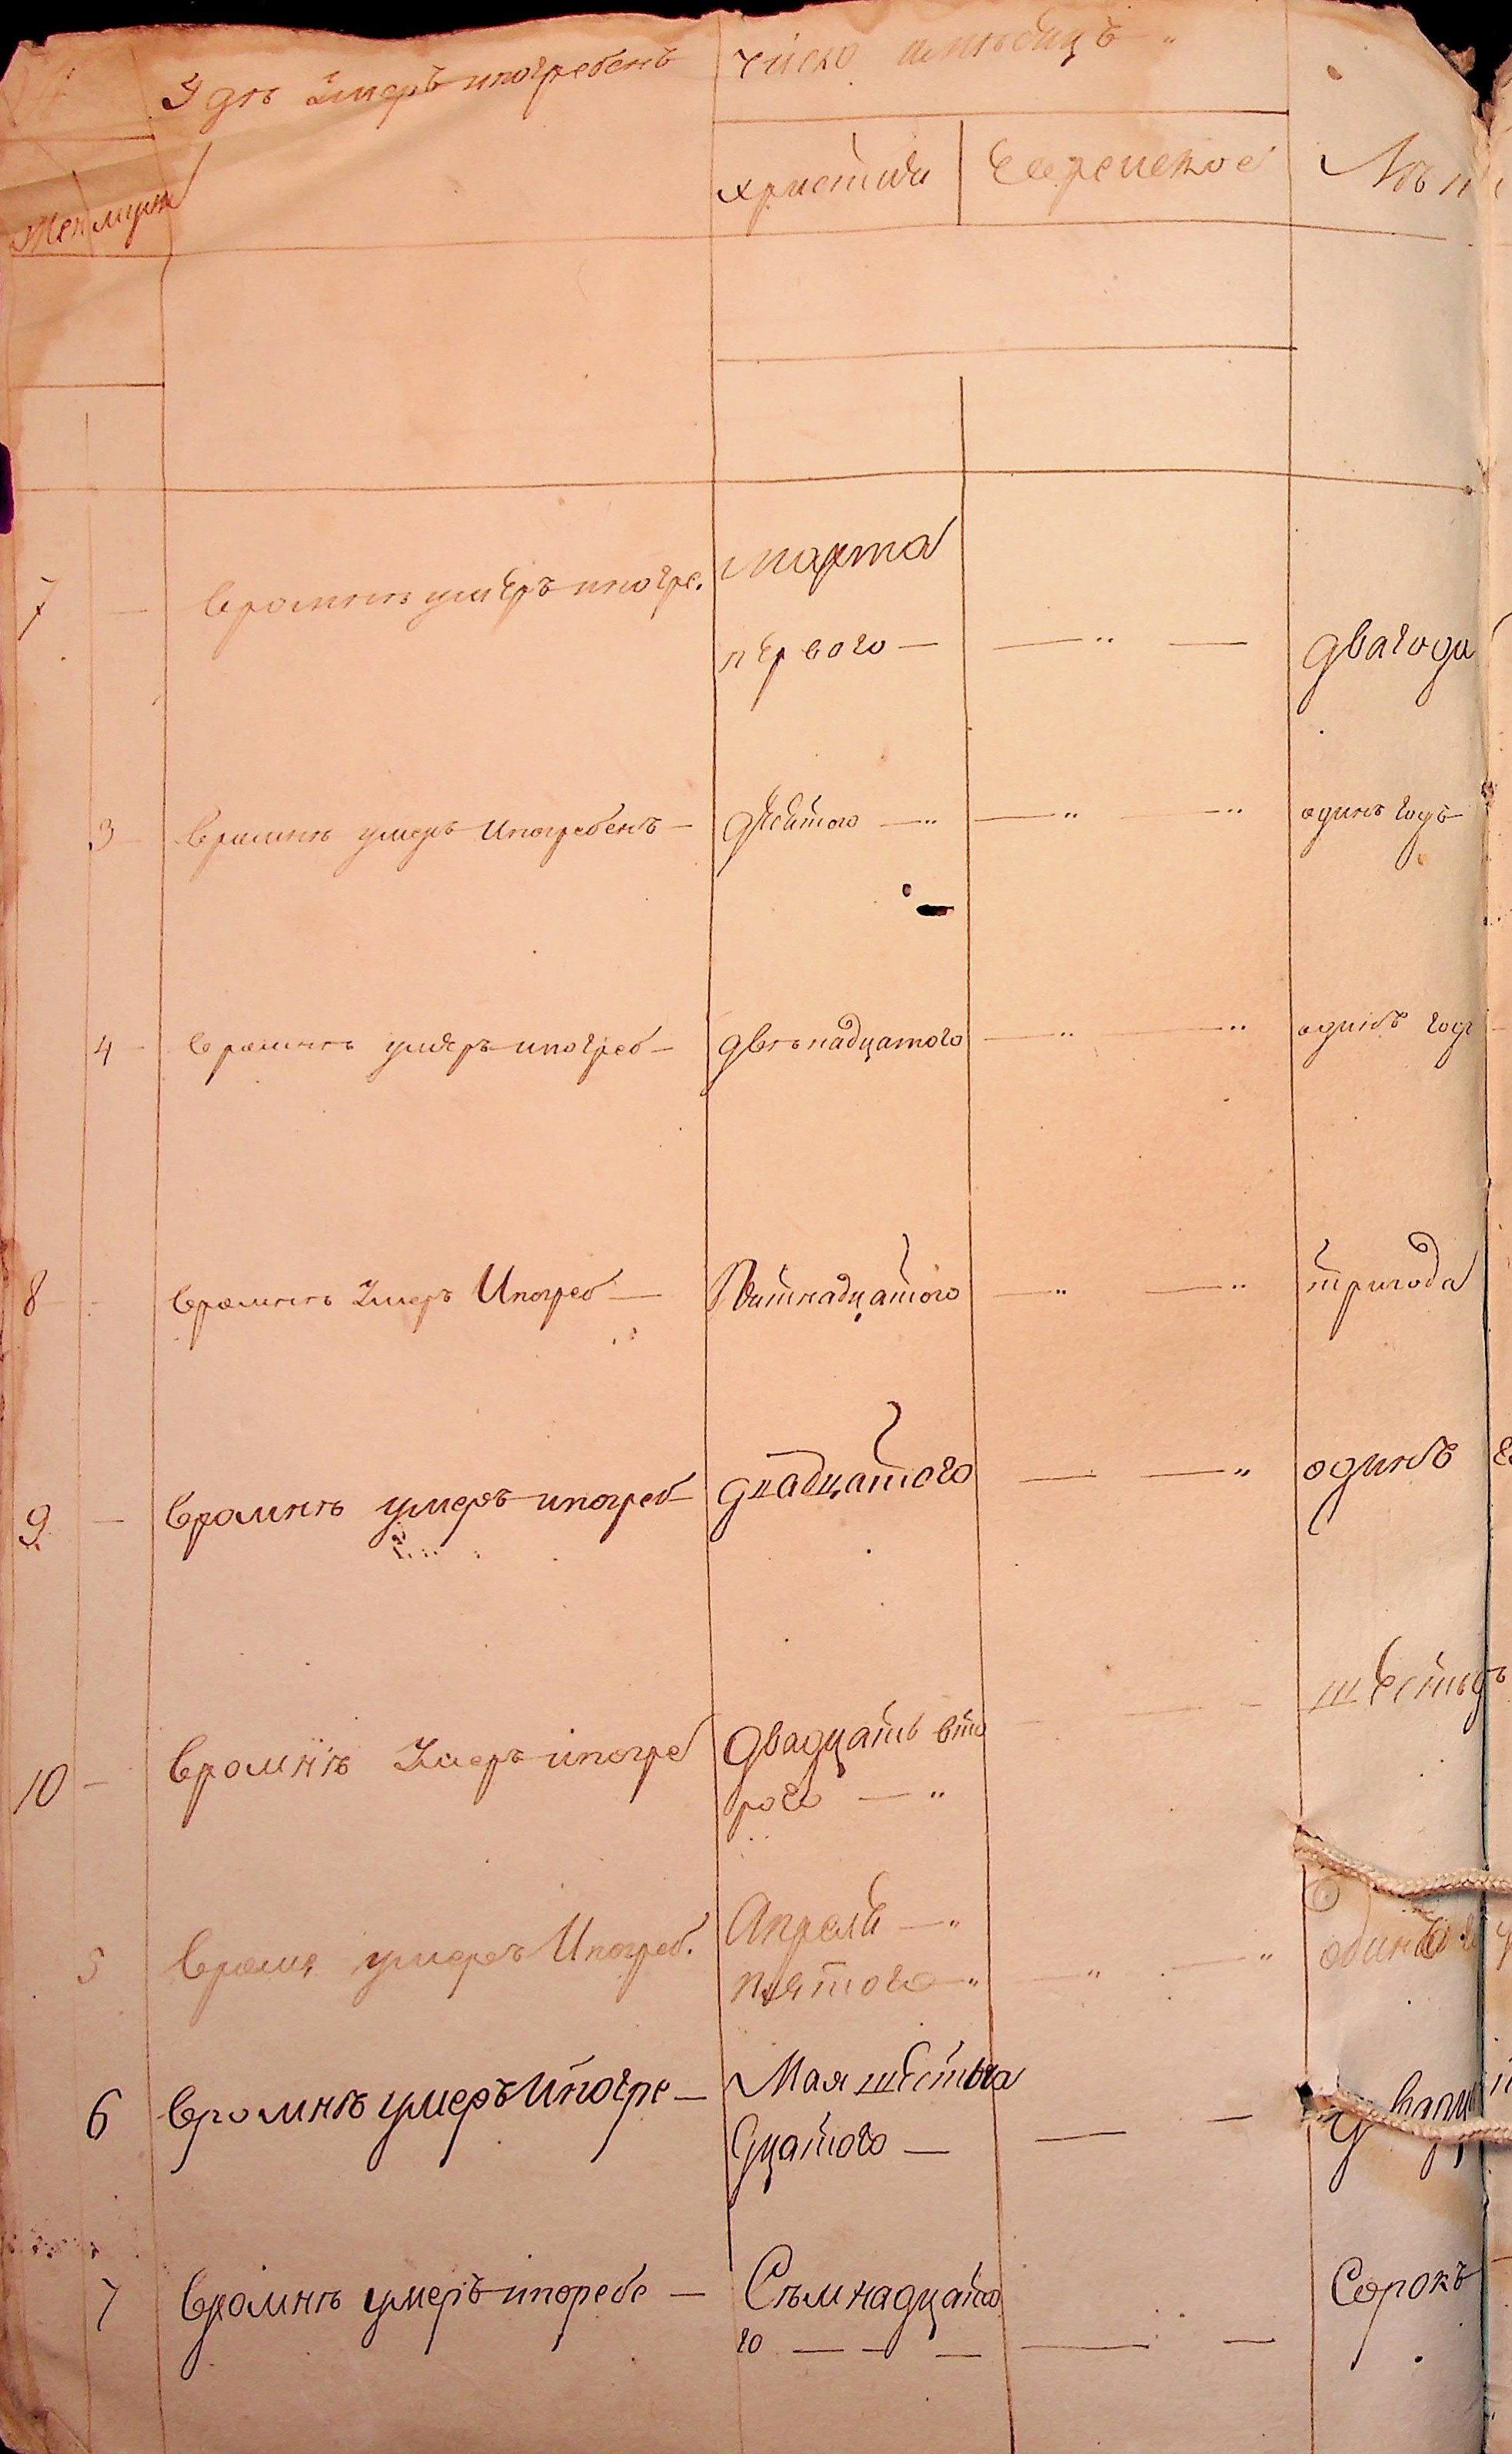 Гдѣ Умеръ ипогребенъ
число имѣсяцъ
Жен муж
христиан Еврейское Лѣт
7 — вромнѣ умЕръ ипогре. марта
пЕрвого — — " — два года
3 — вромнѣ умеръ Ипогребенъ — девятого — " — " — " одинъ годъ
4 — вромнѣ умеръ ипогреб — двѣнадцатого — " — " одинъ годъ
8 — вромнѣ Умеръ Ипогреб — Пятнадцатого — " — " тригода
9 — вромнѣ умеръ ипогреб — двадцатого — — " одинъ
10 — вромнѣ Умеръ ипогреб двадцать вто шЕстьд
рого — "
5 вромнѣ умеръ Ипогреб. Апреля — "
пятого — " — " — " одинъ
6 вромнѣ умеръ Ипогре — Мая шЕстна
дцатого — — —
7 вромнѣ умеръ ипоребе — Сѣмнадцато Сорокъ
го — — — — —